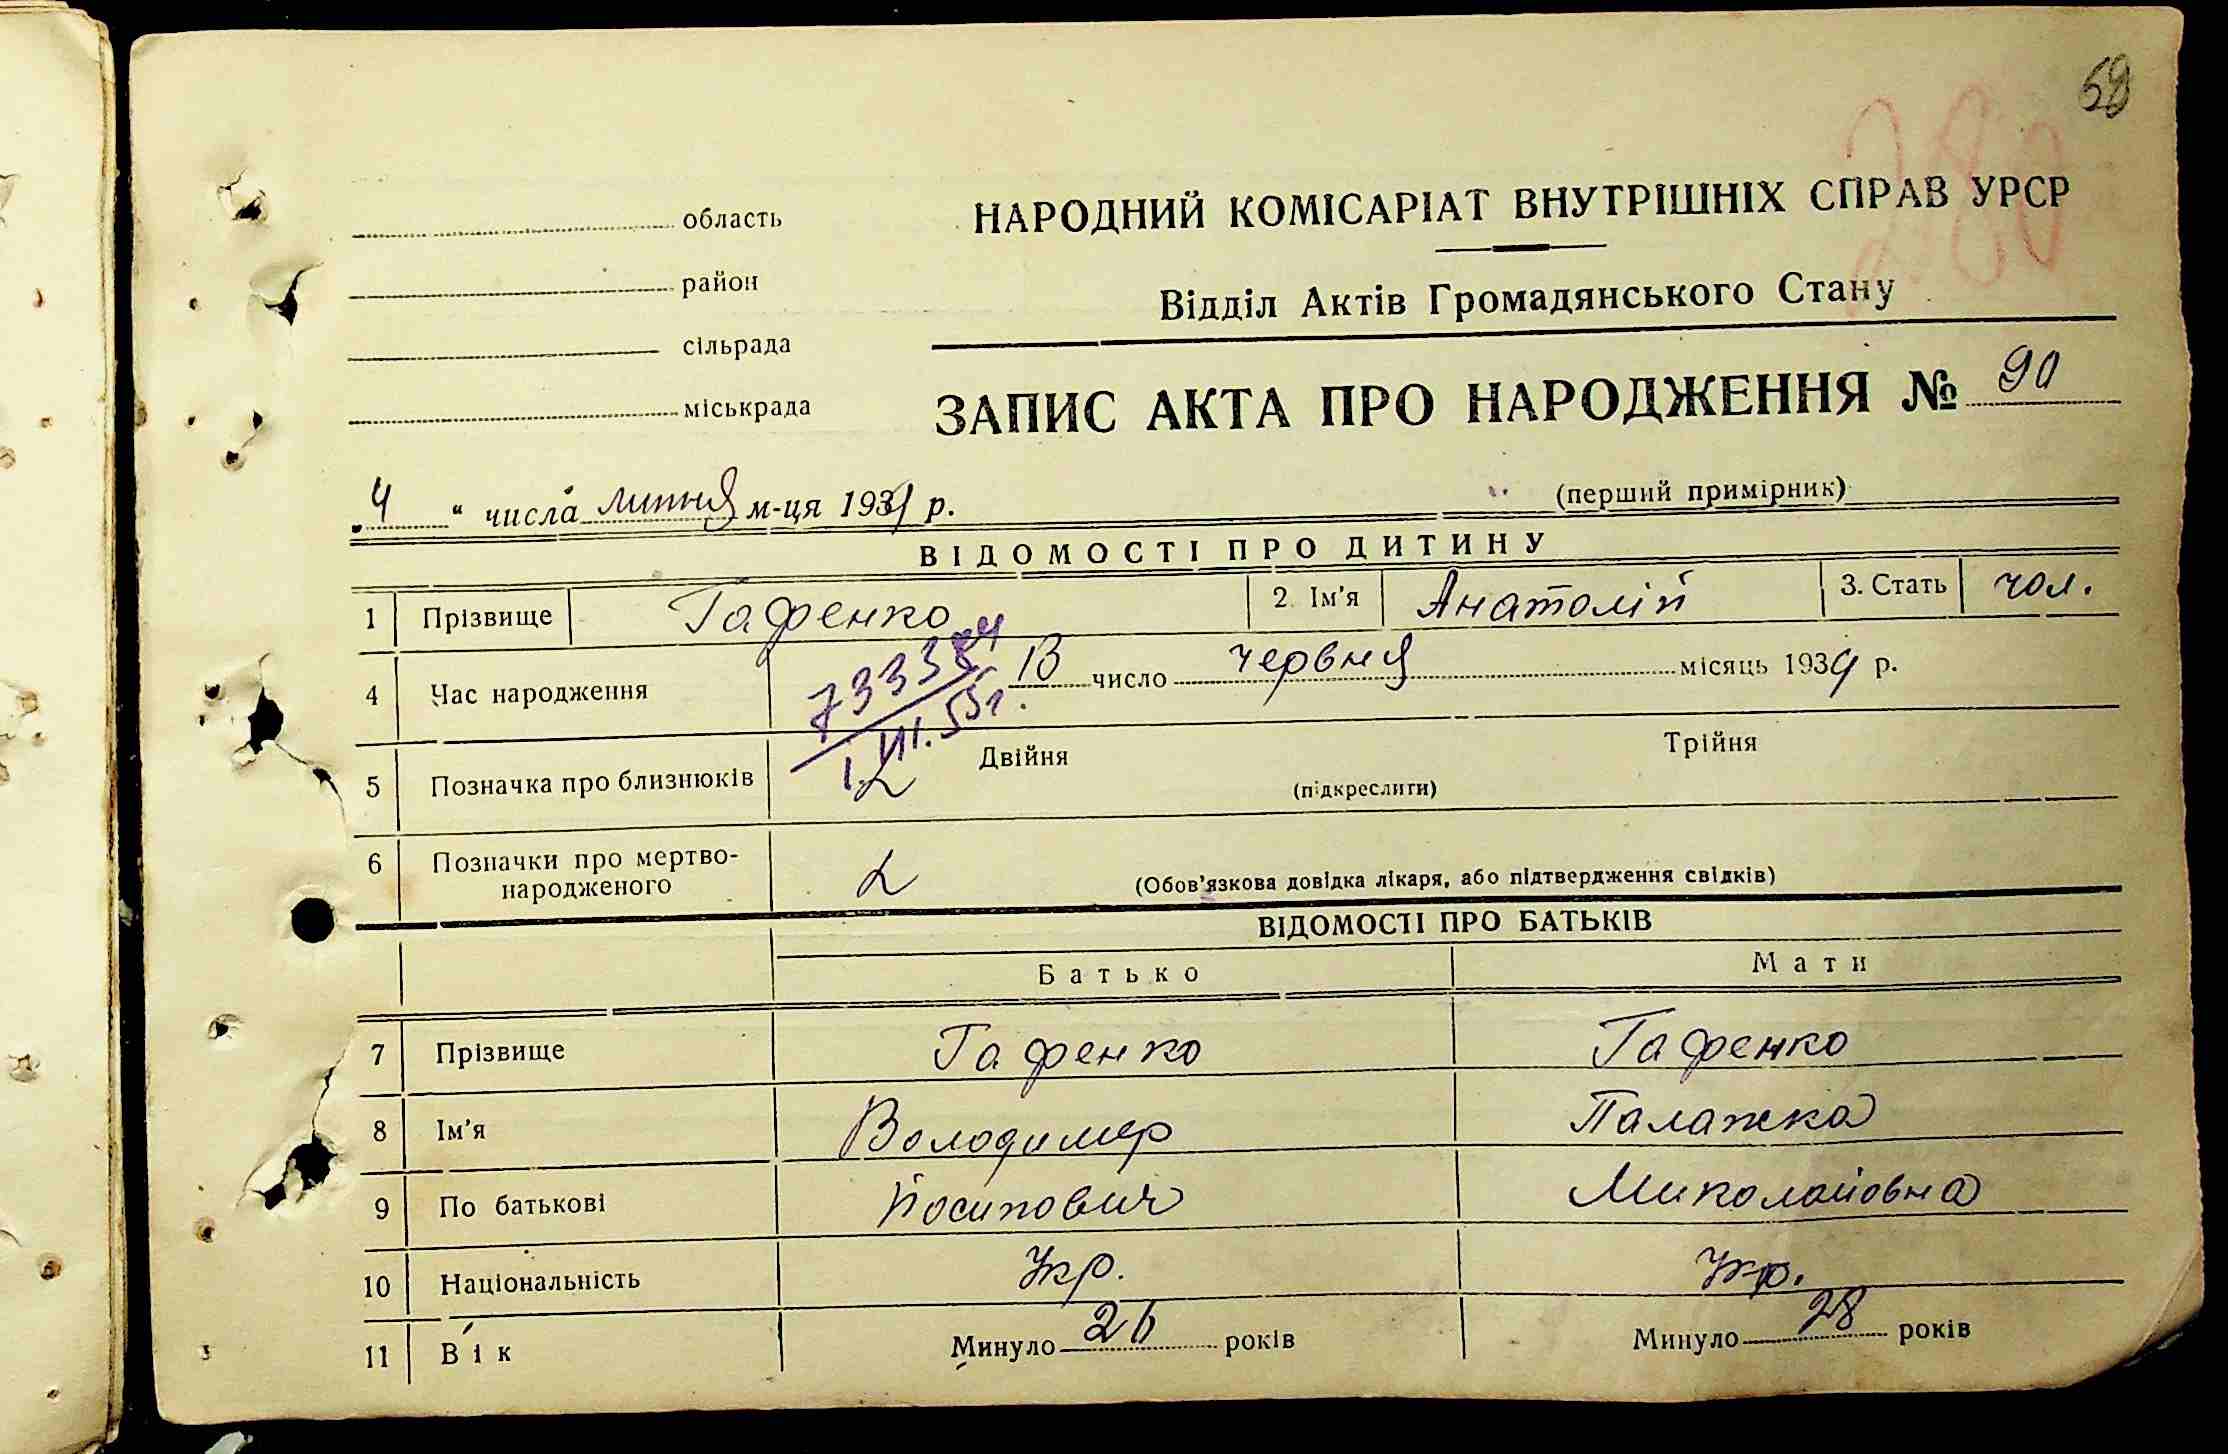 58
280
область
район
сільрада
міськрада
НАРОДНИЙ КОМІСАРІАТ ВНУТРІШНІХ СПРАВ УРСР
Відділ Актів Громадянського Стану
ЗАПИС АКТА ПРО НАРОДЖЕННЯ № 90
„ 4 “ числа липня м-ця 1939 р.
(перший примірник)
ВІДОМОСТІ ПРО ДИТИНУ
1 Прізвище Гафенко 2. Ім'я Анатолій 3. Стать чол.
4 Час народження 13 число червня місяць 1939 р.
5 Позначка про близнюків Двійня Трійня
(підкреслити)
6 Позначки про мертво-
народженого
(Обов'язкова довідка лікаря, або підтвердження свідків)
ВІДОМОСТІ ПРО БАТЬКІВ
Батько Мати
7 Прізвище Гафенко Гафенко
8 Ім'я Володимер Палажка
9 По батькові Йосипович Миколайовна
10 Національність Укр. Укр.
11 Вік Минуло 26 років Минуло 28 років